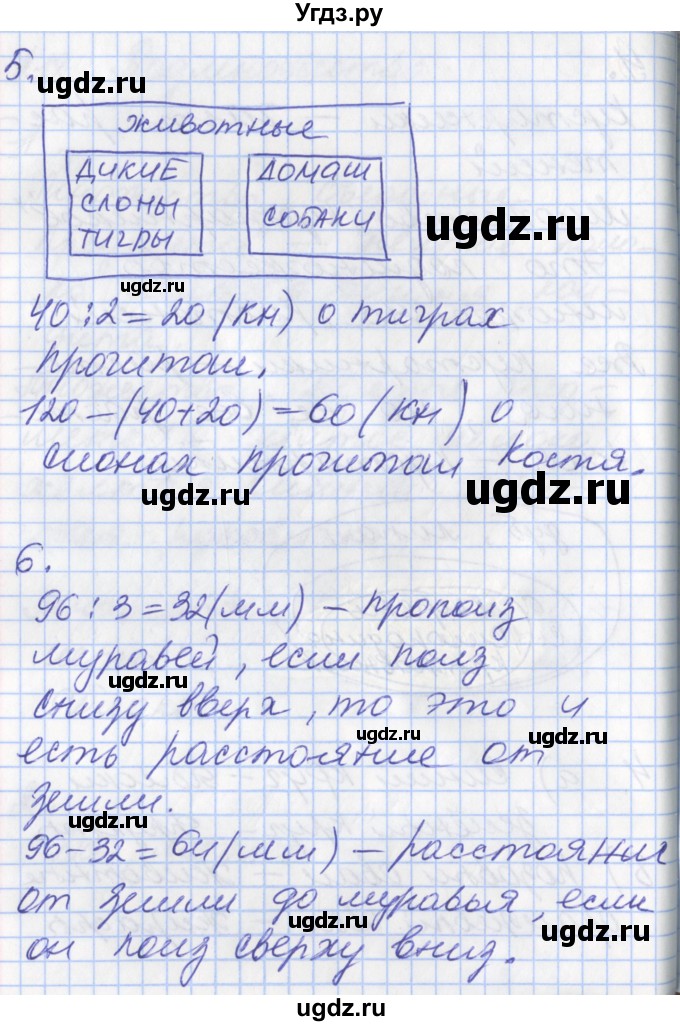 Угдз.ру
5.
ugdz.ru
животные
ДИКИЕ
СЛОНЫ
ТИГРЫ
ДОМАШ
СОБАКИ
ugdz.ru
ugdz.ru
40 : 2 = 20 (кн) о тиграх
прочитал.
120 – (40 + 20) = 60 (кн) о
слонах прочитал Костя.
ugdz.ru
ugdz.ru
6.
96 : 3 = 32 (мм) – прополз
муравей, если полз
ugdz.ru
снизу вверх, то это и
ugdz.ru
есть расстояние от
земли.
ugdz.ru
96 – 32 = 64 (мм) – расстояние
от земли до муравья, если
ugdz.ru
ugdz.ru
он полз сверху вниз.
ugdz.ru